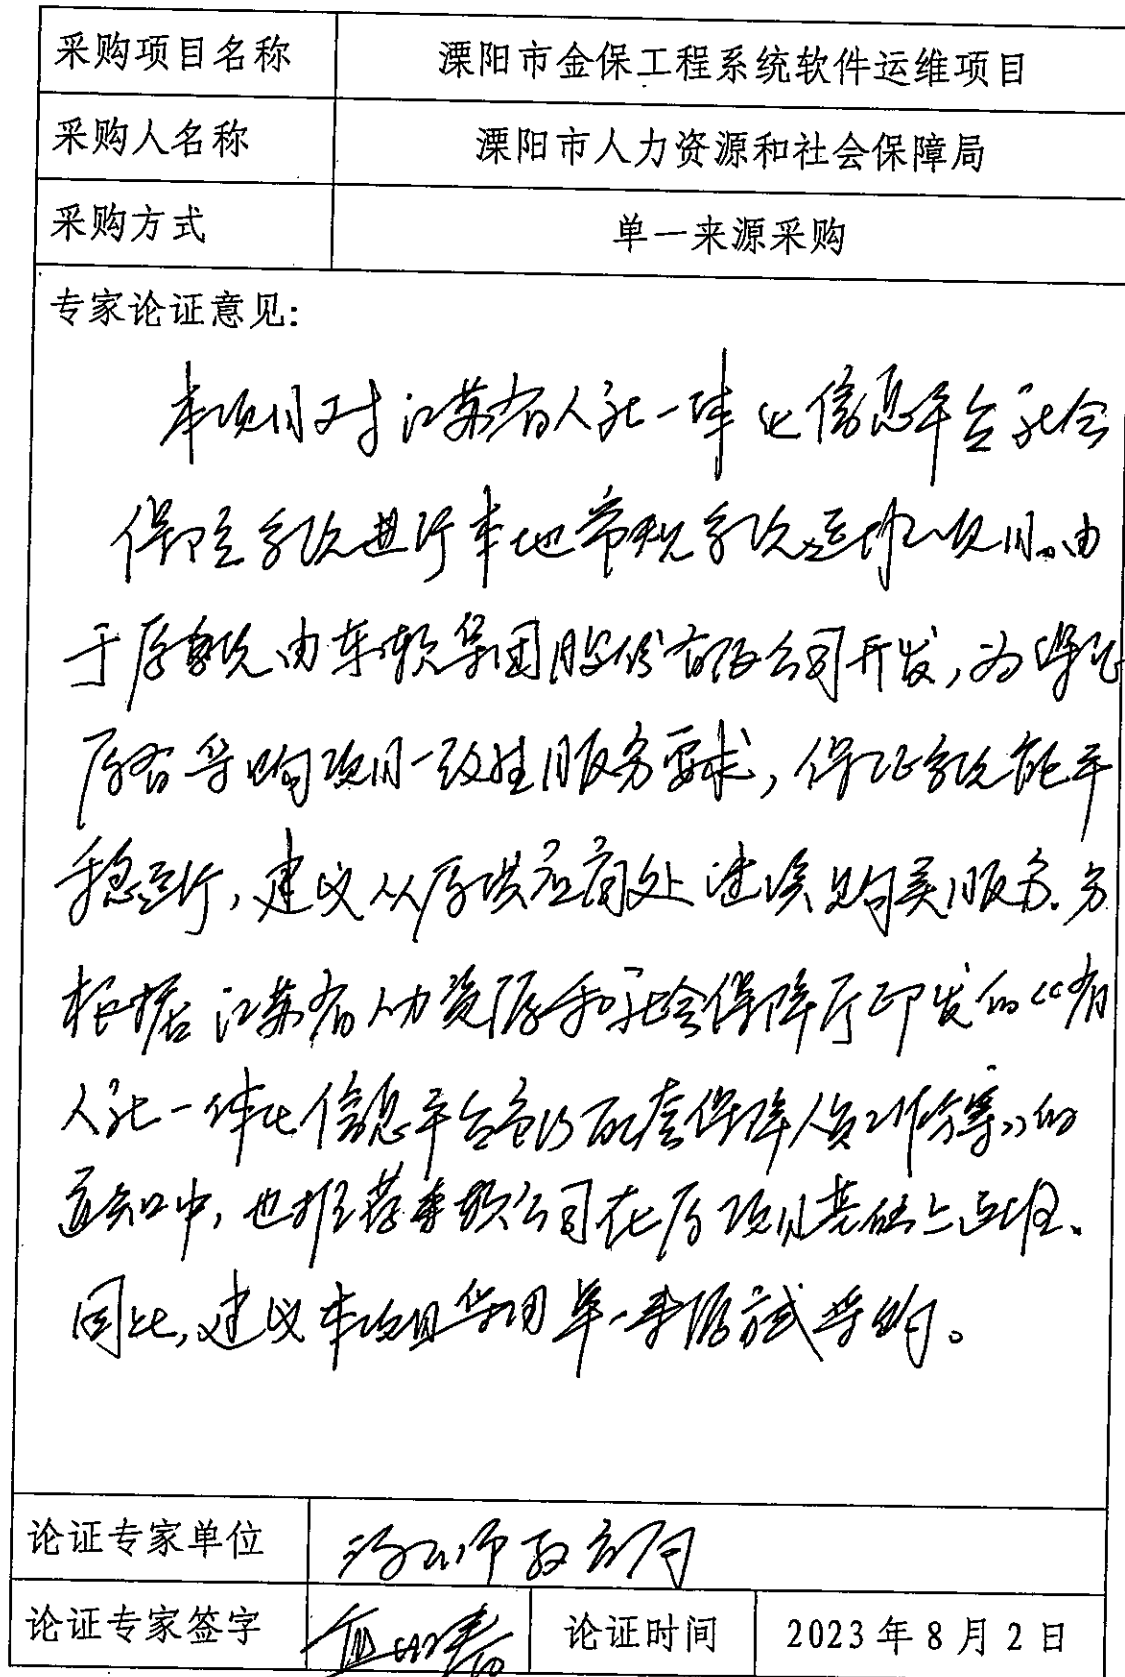 采购项目名称 溧阳市金保工程系统软件运维项目
采购人名称 溧阳市人力资源和社会保障局
采购方式 单一来源采购
专家论证意见:
本项目对江苏省人社一体化信息平台社会
保障系统进行本地常规系统运维项目。由
于原系统由东软集团股份有限公司开发,为保证
原有采购项目一致性服务要求,保证系统能平
稳运行,建议从原供应商处继续购买服务。另
根据江苏省人力资源和社会保障厅印发的《省
人社一体化信息平台配套保障人员工作方案》的
通知中,也推荐东软公司在原项目基础上运维。
因此,建议本项目采用单一来源方式采购。
论证专家单位 教育局
论证专家签字 论证时间 2023年8月2日